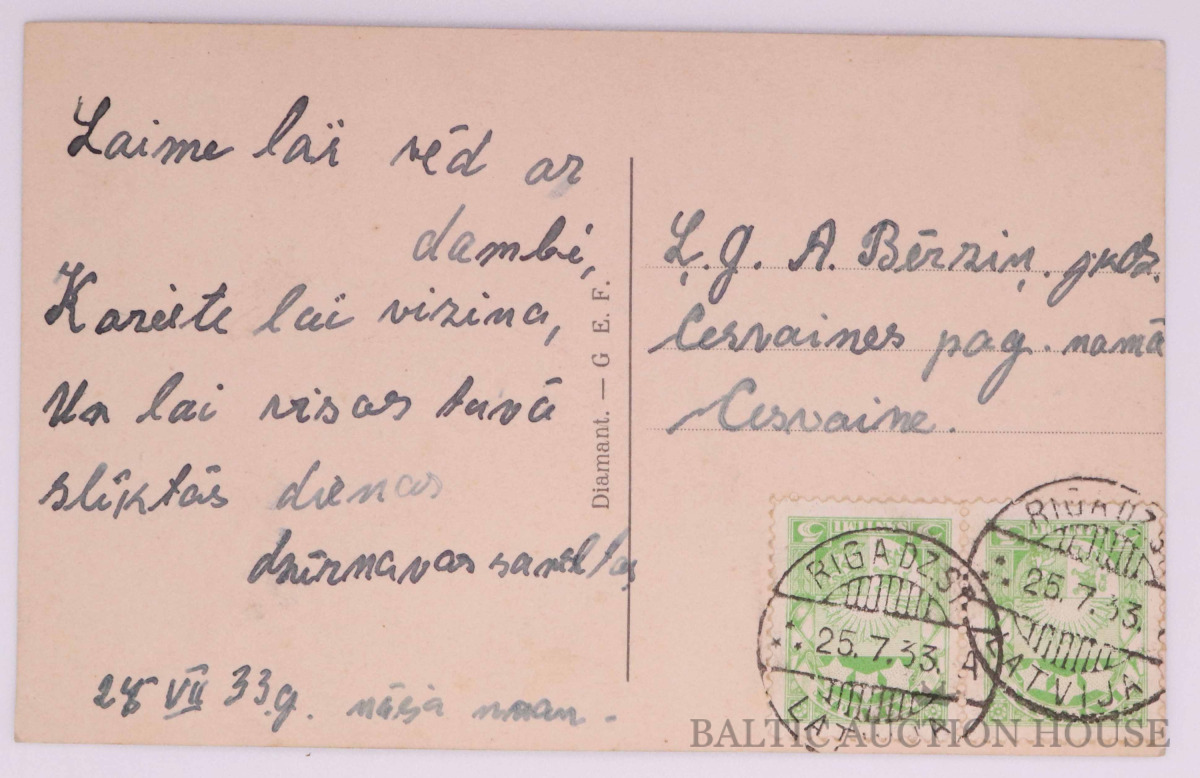 Laime laï vēd ar
dambi,
Kareite laï vizina,
Un lai visas tavā
sliktās dienas
dzirnavas samel
VII 33.g.
Diamant. — G E F.
Ļ. g. A. Bērziņ. jkdz.
Cesvaines pag. namā
Cesvaine.
5
5
RIGA DZ. ST.
25. 7. 33. A
LATVIJA
RIGA DZ. S
25. 7. 33.
LATVIJA
BALTIC AUCTION HOUSE